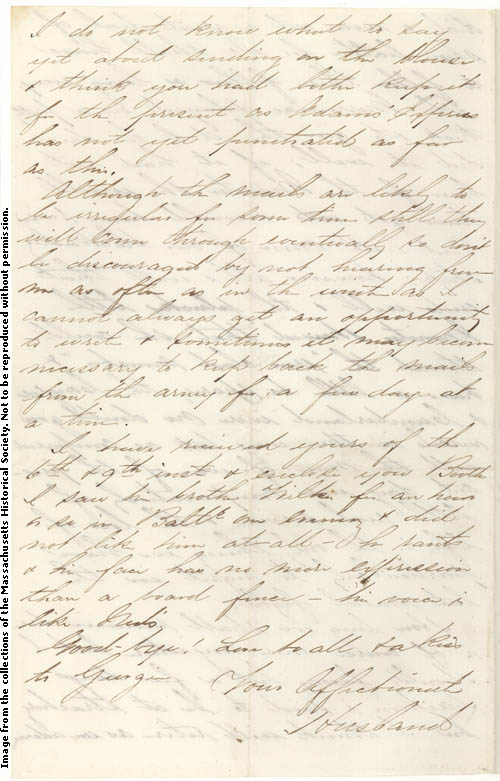 I do not know what to say
yet about sending on the blouse
& think you had better keep it
for the present as Adams' Express
has not yet penetrated as far
as this.
Although the mails are likely to
be irregular for some time still they
will come through eventually so don't
be discouraged by not hearing from
me as often as in the  as I
cannot always get an opportunity
to write & sometimes it may become
necessary to keep back the mails
from the army for a few days at
a time.
I have received yours of the
6th & 9th inst & enclose you Booth
I saw his brother Wilkes for an hour
or so in Balto one evening & did
not like him at all - he rants
& his face has no more expression
than a board fence - his voice is
like
Good-bye! Love to all & a kiss
to George
Your Affectionate
Husband
Image from the collections of the Massachusetts Historical Society. Not to be reproduced without permission.